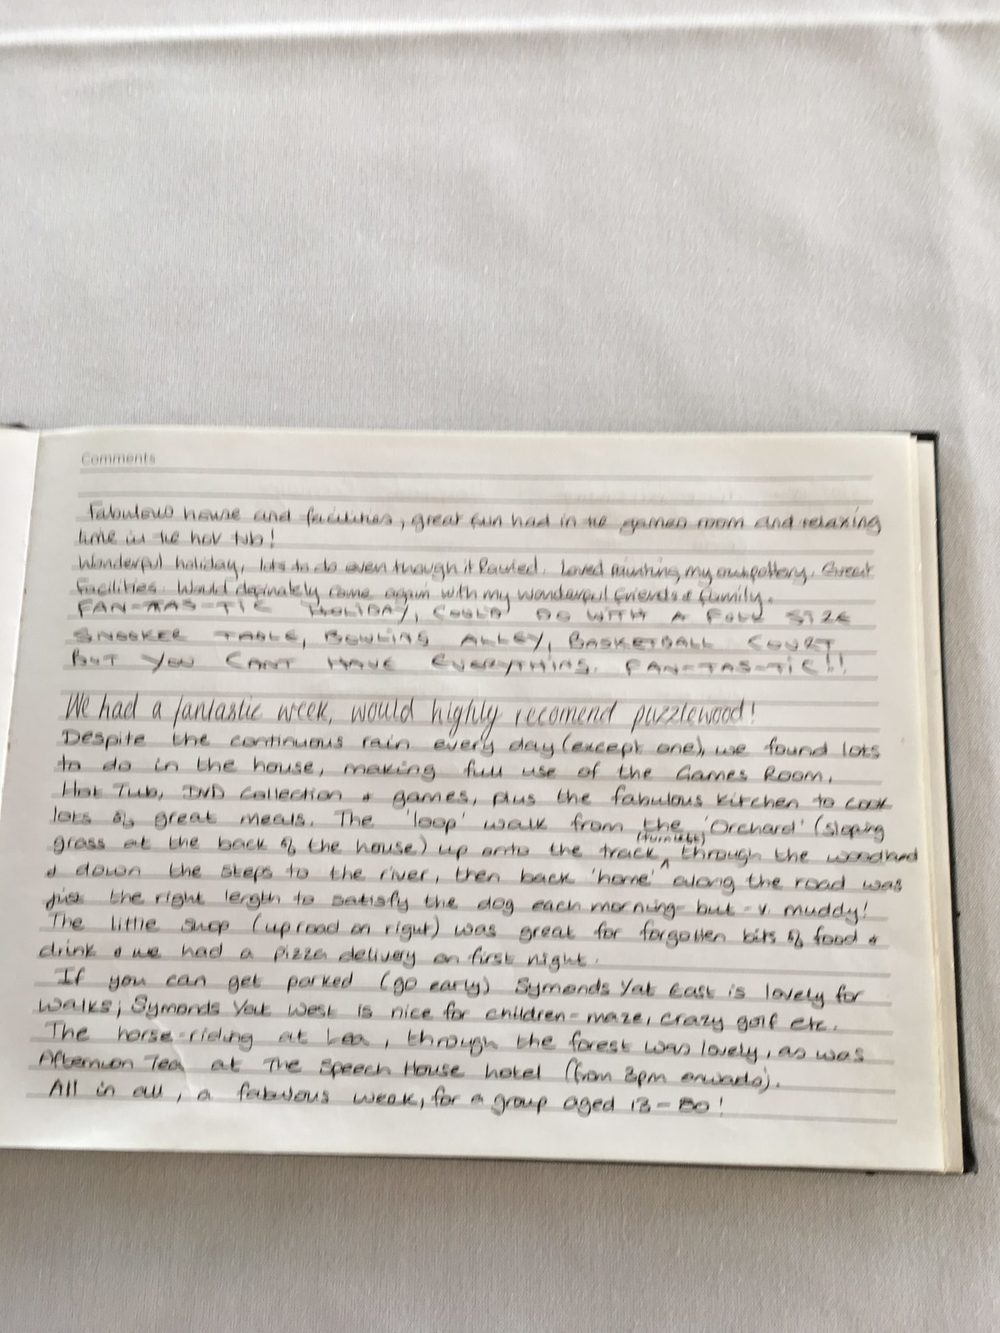 Comments
Fabulous house and facilities, great fun had in the games room and relaxing
time in the hot tub!
Wonderful holiday, lots to do even though it Rained. Loved painting my own pottery. Great
Facilities. Would definately come again with my wonderful friends & family.
FAN-TAS-TIC HOLIDAY, COULD DO WITH A FULL SIZE
SNOOKER TABLE, BOWLING ALLEY, BASKETBALL COURT
BUT YOU CANT HAVE EVERYTHING. FAN-TAS-TIC!!
We had a fantastic week, would highly recomend puzzlewood!
Despite the continuous rain every day (except one), we found lots
to do in the house, making full use of the Games Room,
Hot Tub, DVD Collection & games, plus the fabulous kitchen to cook
lots of great meals. The 'loop' walk from the 'Orchard' (sloping
grass at the back of the house) up onto the track (turn left) through the woodland
& down the steps to the river, then back 'home' along the road was
just the right length to satisfy the dog each morning - but - v. muddy!
The little shop (up road on right) was great for forgotten bits of food &
drink & we had a pizza delivery on first night.
If you can get parked (go early) Symonds Yat East is lovely for
walks; Symonds Yat West is nice for children - maze, crazy golf etc.
The horse-riding at Lea, through the forest was lovely, as was
Afternoon Tea at The Speech House hotel (from 3pm onwards).
All in all, a fabulous week, for a group aged 13 - 80!